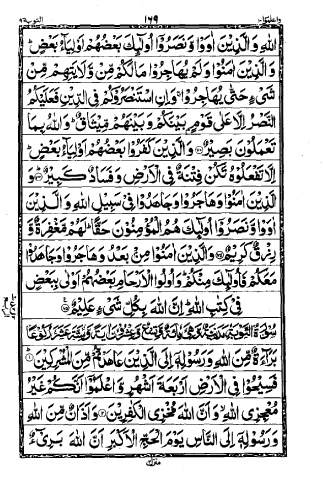 واعلموا ١٠ ١٦٩ التوبة ٩
اللهِ وَالَّذِيْنَ اٰوَوْا وَّنَصَرُوْۤا اُولٰٓئِكَ بَعْضُهُمْ اَوْلِيَآءُ بَعْضٍؕ
وَالَّذِيْنَ اٰمَنُوْا وَلَمْ يُهَاجِرُوْا مَا لَكُمْ مِّنْ وَّلَايَتِهِمْ مِّنْ
شَىْءٍ حَتّٰى يُهَاجِرُوْاۚ وَاِنِ اسْتَنْصَرُوْكُمْ فِى الدِّيْنِ فَعَلَيْكُمُ
النَّصْرُ اِلَّا عَلٰى قَوْمٍۭ بَيْنَكُمْ وَبَيْنَهُمْ مِّيْثَاقٌؕ وَاللهُ بِمَا
تَعْمَلُوْنَ بَصِيْرٌ ۝ وَالَّذِيْنَ كَفَرُوْا بَعْضُهُمْ اَوْلِيَآءُ بَعْضٍؕ
اِلَّا تَفْعَلُوْهُ تَكُنْ فِتْنَةٌ فِى الْاَرْضِ وَفَسَادٌ كَبِيْرٌؕ ۝ وَ
الَّذِيْنَ اٰمَنُوْا وَهَاجَرُوْا وَجَاهَدُوْا فِىْ سَبِيْلِ اللهِ وَالَّذِيْنَ
اٰوَوْا وَّنَصَرُوْۤا اُولٰٓئِكَ هُمُ الْمُؤْمِنُوْنَ حَقًّاؕ لَهُمْ مَّغْفِرَةٌ وَّ
رِزْقٌ كَرِيْمٌ ۝ وَالَّذِيْنَ اٰمَنُوْا مِنْۢ بَعْدُ وَهَاجَرُوْا وَجَاهَدُوْا
مَعَكُمْ فَاُولٰٓئِكَ مِنْكُمْؕ وَاُولُوا الْاَرْحَامِ بَعْضُهُمْ اَوْلٰى بِبَعْضٍ
فِىْ كِتٰبِ اللهِؕ اِنَّ اللهَ بِكُلِّ شَىْءٍ عَلِيْمٌ ۝
سُوْرَةُ التَّوْبَةِ مَدَنِيَّةٌ
بَرَآءَةٌ مِّنَ اللهِ وَرَسُوْلِهٖۤ اِلَى الَّذِيْنَ عَاهَدْتُّمْ مِّنَ الْمُشْرِكِيْنَؕ ۝
فَسِيْحُوْا فِى الْاَرْضِ اَرْبَعَةَ اَشْهُرٍ وَّاعْلَمُوْۤا اَنَّكُمْ غَيْرُ
مُعْجِزِى اللهِۙ وَاَنَّ اللهَ مُخْزِى الْكٰفِرِيْنَ ۝ وَاَذَانٌ مِّنَ اللهِ
وَرَسُوْلِهٖۤ اِلَى النَّاسِ يَوْمَ الْحَجِّ الْاَكْبَرِ اَنَّ اللهَ بَرِىْٓءٌ
منزل